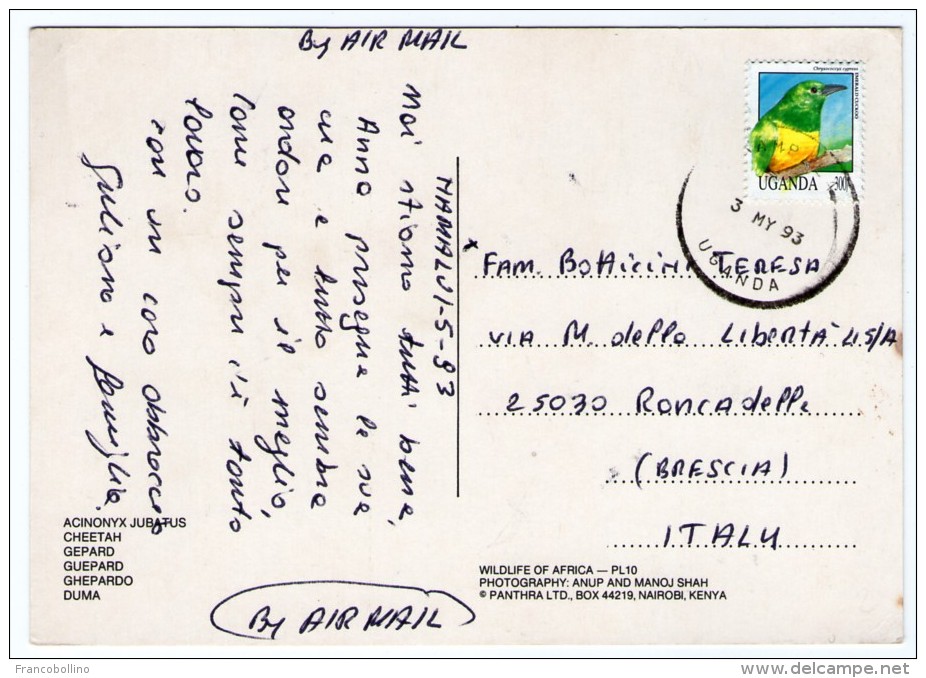 By AIR MAIL
NAMALU 1-5-93
Noi stiamo tutti bene,
Anna prosegue le sue
cure e tutto sembra
andare per il meglio,
come sempre c'è tanto
lavoro.
con un caro abbraccio
Giuliano e famiglia.
Chrysococcyx cupreus
EMERALD CUCKOO
UGANDA 300/-
3 MY 93
UGANDA
FAM. Botticini TERESA
VIA M. della Libertà 45/A
25030 Roncadelle
(BRESCIA)
ITALY
ACINONYX JUBATUS
CHEETAH
GEPARD
GUEPARD
GHEPARDO
DUMA
WILDLIFE OF AFRICA — PL10
PHOTOGRAPHY: ANUP AND MANOJ SHAH
© PANTHRA LTD., BOX 44219, NAIROBI, KENYA
By AIR MAIL
Francobollino
delcampe.net